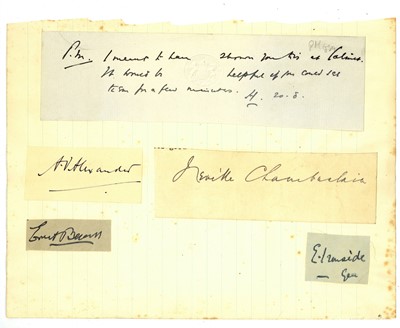 P.M. I meant to have shown you this at Cabinet.
It would be helpful if you could see
them for a few minutes. H. 20.5.
A.V. Alexander
Neville Chamberlain
Ernest Brown
E. Ironside
Gen